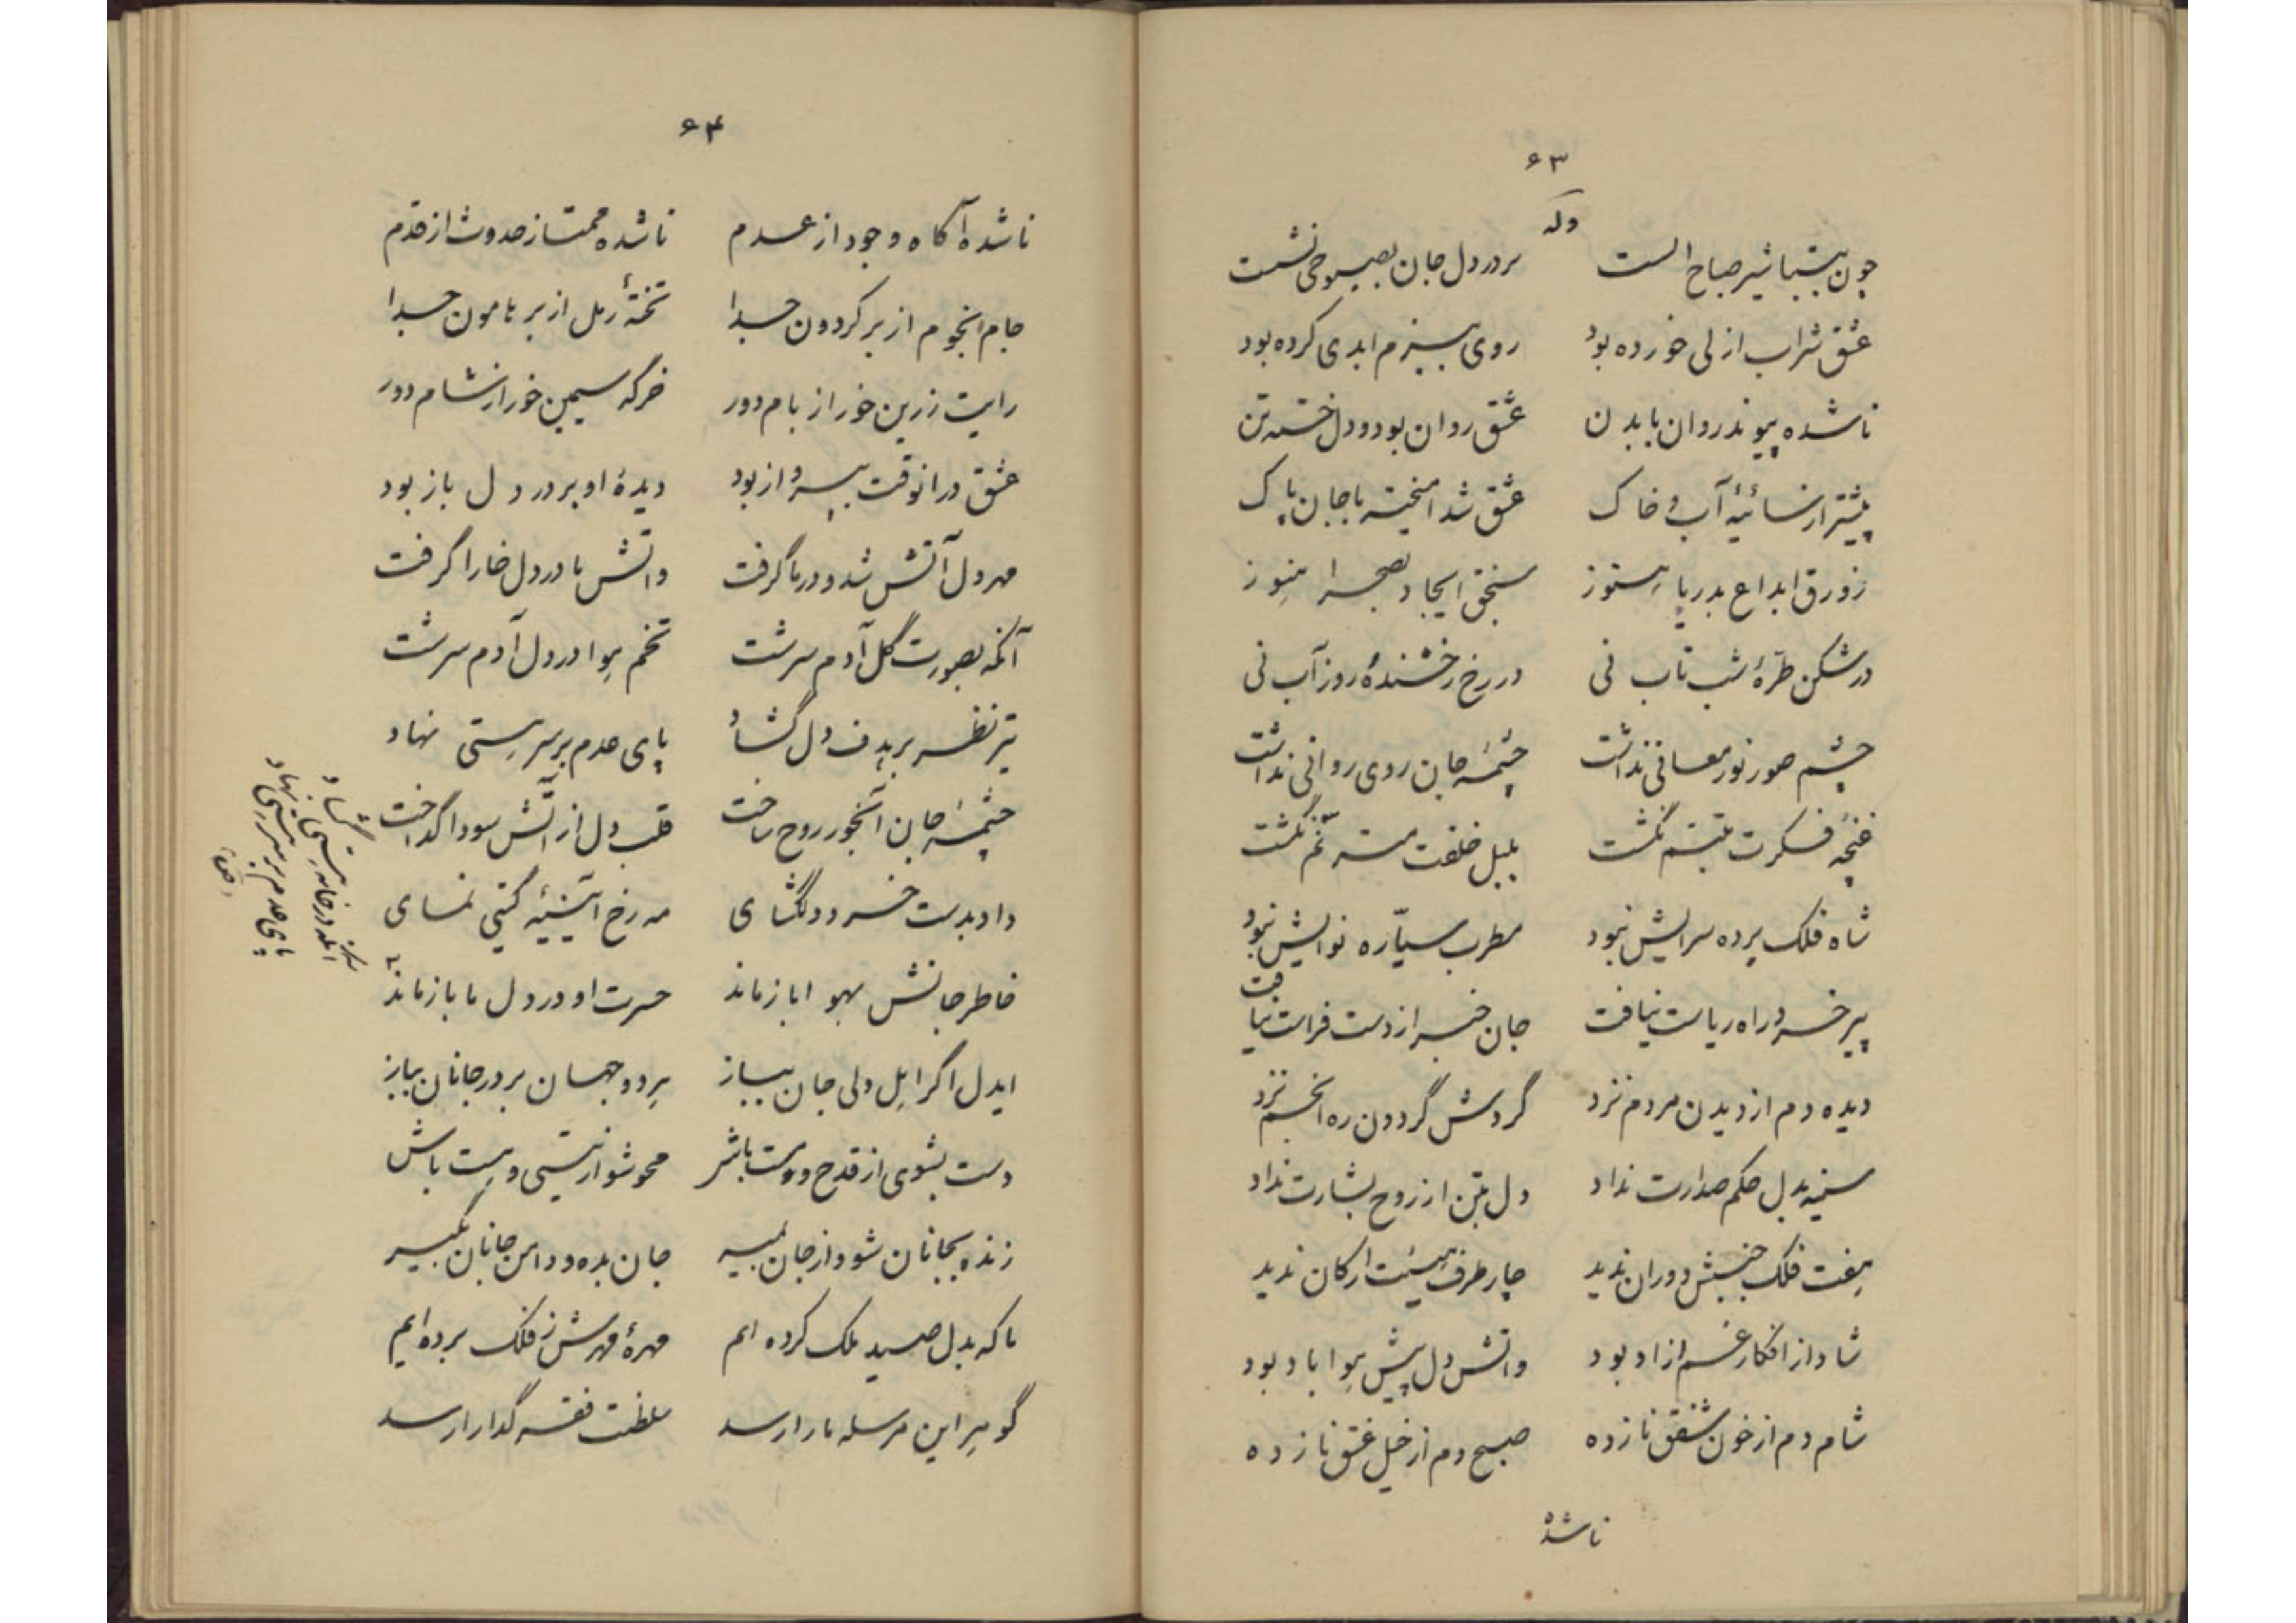 ۶۳
وله
چون بتباشیر صباح الست
بر در دل جان بصبوحی نشست
عشق شراب ازلی خورده بود
روی ببزم ابدی کرده بود
ناشده پیوند روان با بدن
عشق روان بود و دل خسته تن
پیشتر از نسائیهٔ آب و خاک
عشق شد امیخته با جان پاک
زورق ابداع بدریا هنوز
سنجق ایجاد بصحرا هنوز
در شکن طرّهٔ شب تاب نی
در رخ رخشندهٔ روز آب نی
چشم صور نور معانی نداشت
چشمهٔ جان روی روانی نداشت
غنچه فکرت متبسّم نگشت
بلبل خلقت مترنّم نگشت
شاه فلک پرده سرایش نبود
مطرب سیّاره نوایش نبود
پیر خرد راه ریاست نیافت
جان خبر از دست فراست نیافت
دیده دم از دیدن مردم نزد
گردش گردون ره انجم نزد
سینه بدل حکم صدارت نداد
دل بتن از روح بشارت نداد
هفت فلک جنبش دوران ندید
چار طرف هیئت ارکان ندید
شاد از افکار غم ازاد بود
واتش دل پیش هوا باد بود
شام دم از خون شفق نازده
صبح دم از خیل غسق نازده
ناشده
۶۴
ناشده آکاه وجود از عدم
ناشده ممتاز حدوث از قدم
جام انجوم از بر کردون جدا
تختهٔ رمل از بر هامون جدا
رایت زرین خور از بام دور
خرکه سیمین خور از شام دور
عشق در انوقت بپرواز بود
دیدهٔ او بر در دل باز بود
مهر دل آتش شد و در ما گرفت
واتش ما در دل خارا گرفت
آنکه بصورت گل آدم سرشت
تخم هوا در دل آدم سرشت
تیر نظر بر هدف دل گشاد
پای عدم بر سر هستی نهاد
چشمهٔ جان آبخور روح ساخت
قلب دل از آتش سودا گداخت
داد بدست خرد دلگشای
مه رخ آئینهٔ گیتی نمای
خاطر جانش بهوا باز ماند
حسرت او در دل ما باز ماند
ایدل اگر اهل دلی جان بباز
هر دو جهان بر در جانان بباز
دست بشوی از قدح و مست باش
محو شو از نیستی و هست باش
زنده بجانان شو و از جان بمیر
جان بده و دامن جانان بگیر
ما که بدل صید ملک کرده ایم
مهرهٔ مهرش ز فلک برده ایم
گوهر این مرسله ما را رسد
سلطنت فقر گدا را رسد
آنکه در خانه هستی گشاد
پای عدم بر سر هستی نهاد